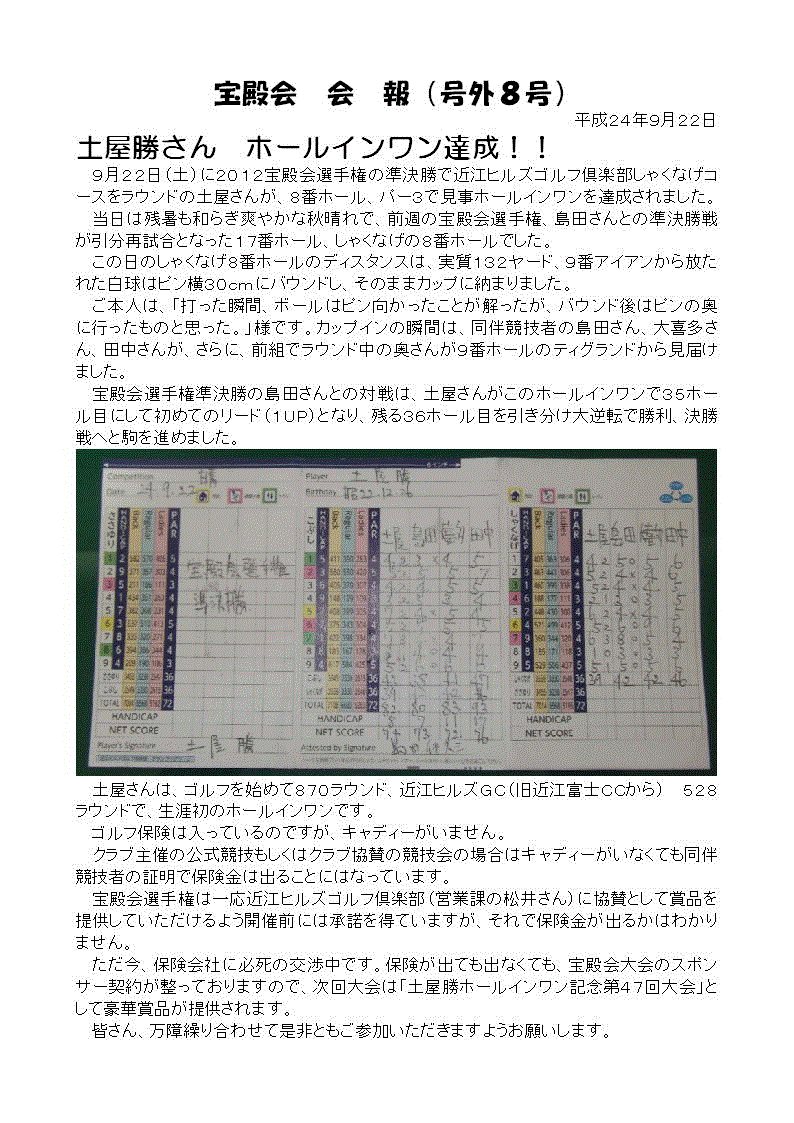 宝殿会　会　報（号外８号）
平成２４年９月２２日
土屋勝さん　ホールインワン達成！！
９月２２日（土）に２０１２宝殿会選手権の準決勝で近江ヒルズゴルフ倶楽部しゃくなげコ
ースをラウンドの土屋さんが、８番ホール、パー３で見事ホールインワンを達成されました。
当日は残暑も和らぎ爽やかな秋晴れで、前週の宝殿会選手権、島田さんとの準決勝戦
が引分再試合となった１７番ホール、しゃくなげの８番ホールでした。
この日のしゃくなげ８番ホールのディスタンスは、実質１３２ヤード、９番アイアンから放た
れた白球はピン横３０ｃｍにバウンドし、そのままカップに納まりました。
ご本人は、「打った瞬間、ボールはピン向かったことが解ったが、バウンド後はピンの奥
に行ったものと思った。」様です。カップインの瞬間は、同伴競技者の島田さん、大喜多さ
ん、田中さんが、さらに、前組でラウンド中の奥さんが９番ホールのティグランドから見届け
ました。
宝殿会選手権準決勝の島田さんとの対戦は、土屋さんがこのホールインワンで３５ホー
ル目にして初めてのリード（１ＵＰ）となり、残る３６ホール目を引き分け大逆転で勝利、決勝
戦へと駒を進めました。
Competition
Date 24.9.22 晴
Player 土屋勝
Birthday 昭22.12.26
Back Regular Ladies PAR
こぶし Back Regular Ladies PAR 土屋 島田 田中
しゃくなげ Back Regular Ladies PAR 土屋 島田 田中
宝殿会選手権
準決勝
TOTAL
HANDICAP
NET SCORE
Player's Signature 土屋 勝
Attested by Signature
TOTAL
HANDICAP
NET SCORE
土屋さんは、ゴルフを始めて８７０ラウンド、近江ヒルズＧＣ（旧近江富士ＣＣから）　５２８
ラウンドで、生涯初のホールインワンです。
ゴルフ保険は入っているのですが、キャディーがいません。
クラブ主催の公式競技もしくはクラブ協賛の競技会の場合はキャディーがいなくても同伴
競技者の証明で保険金は出ることにはなっています。
宝殿会選手権は一応近江ヒルズゴルフ倶楽部（営業課の松井さん）に協賛として賞品を
提供していただけるよう開催前には承諾を得ていますが、それで保険金が出るかはわかり
ません。
ただ今、保険会社に必死の交渉中です。保険が出ても出なくても、宝殿会大会のスポン
サー契約が整っておりますので、次回大会は「土屋勝ホールインワン記念第４７回大会」と
して豪華賞品が提供されます。
皆さん、万障繰り合わせて是非ともご参加いただきますようお願いします。